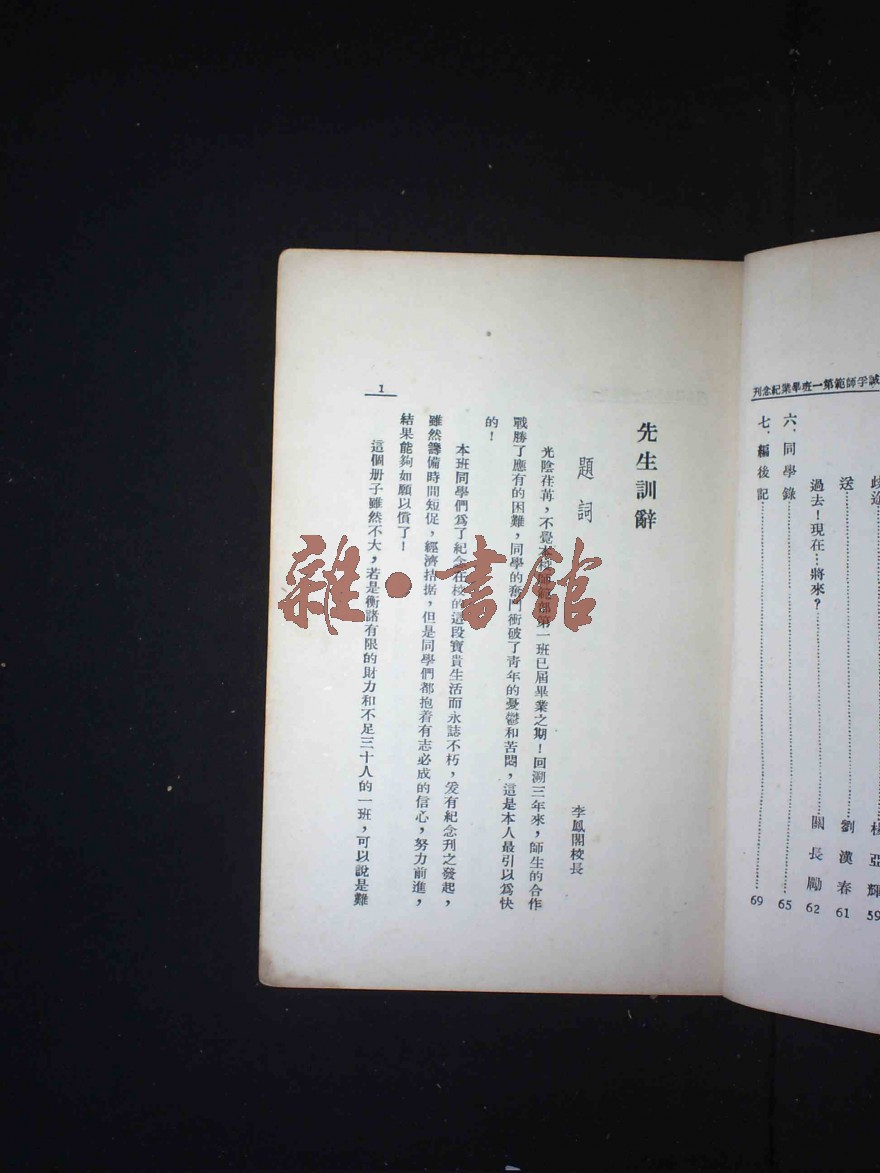 誠孚師範第一班畢業紀念刊
歧途
楊亞輝
59
送
劉漢春
61
過去！現在…將來？
關長勵
62
六、同學錄
65
七、編後記
69
先生訓辭
題詞
李鳳閣校長
光陰荏苒，不覺本校師範部第一班已屆畢業之期！回溯三年來，師生的合作
戰勝了應有的困難，同學的奮鬥衝破了青年的憂鬱和苦悶，這是本人最引以爲快
的！
本班同學們爲了紀念在校的這段寶貴生活而永誌不朽，爰有紀念刊之發起，
雖然籌備時間短促，經濟拮据，但是同學們都抱着有志必成的信心，努力前進，
結果能夠如願以償了！
這個册子雖然不大，若是衡諸有限的財力和不足三十人的一班，可以說是難
1
雜·書館